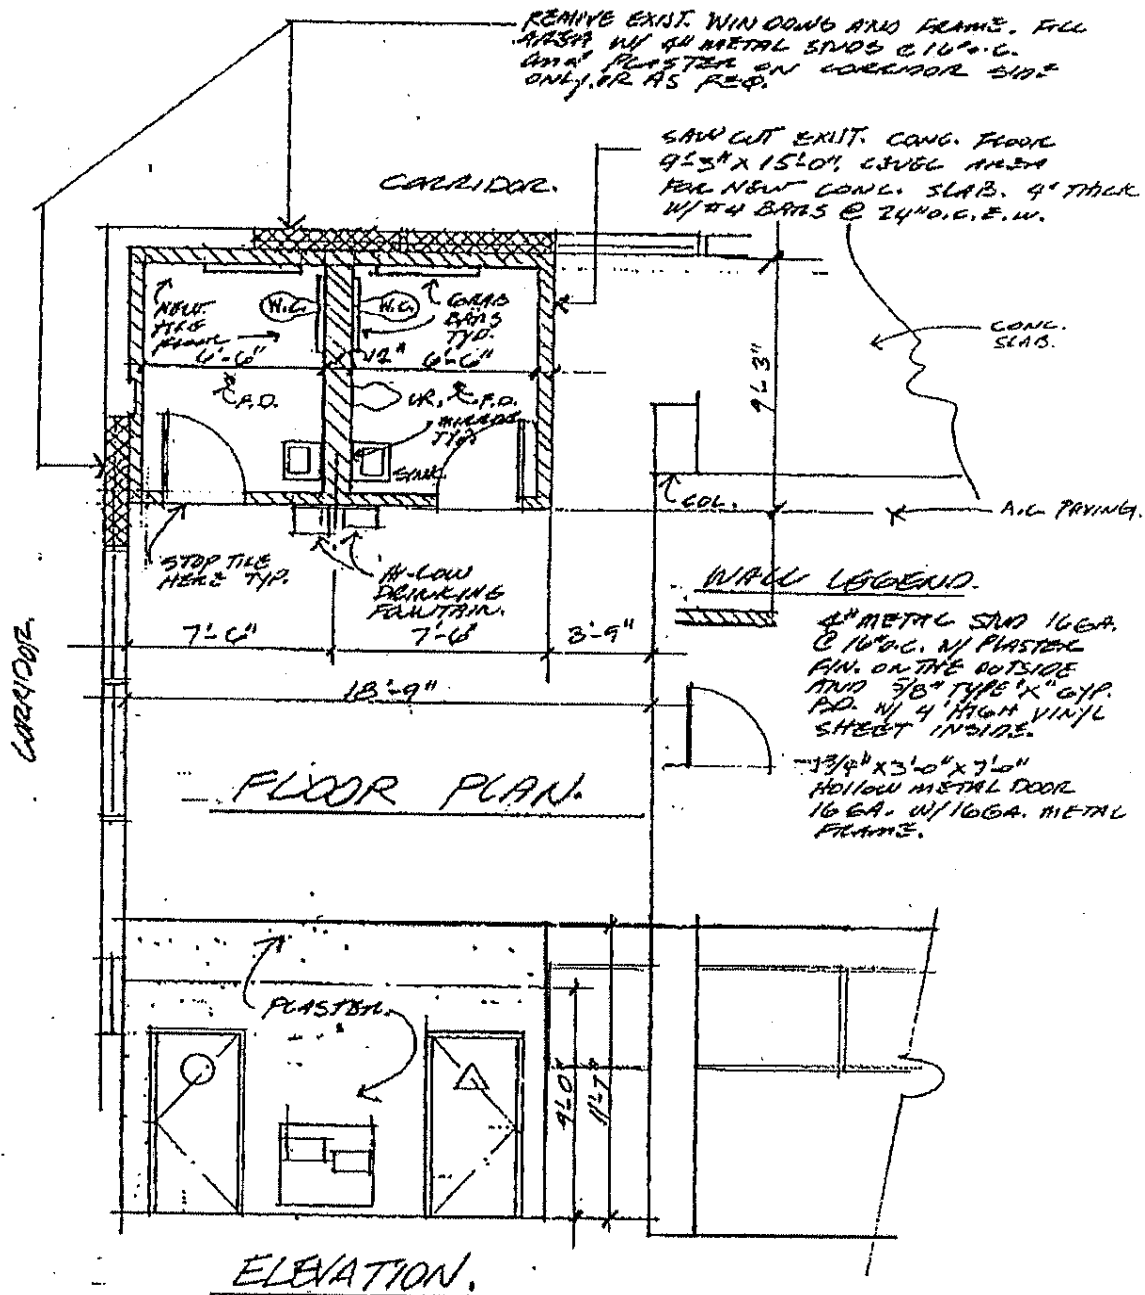 REMOVE EXIST. WINDOWS AND FRAME. FILL
AREA W/ 4" METAL STUDS @ 16" O.C.
AND PLASTER ON CORRIDOR SIDE
ONLY. OR AS REQ.
SAW CUT EXIST. CONC. FLOOR
9'-3" X 15'-0". LEVEL AREA
FOR NEW CONC. SLAB. 4" THICK
W/ #4 BARS @ 24" O.C. E.W.
CORRIDOR.
NEW
TILE
FLOOR
W.C.
W.C.
GRAB
BARS
TYP.
CONC.
SLAB.
6'-6"
12"
6'-6"
9'-3"
F.D.
UR.
F.D.
MIRROR
TYP.
SINK
COL.
A.C. PAVING.
STOP TILE
HERE TYP.
HI-LOW
DRINKING
FOUNTAIN.
WALL LEGEND.
4" METAL STUD 16GA.
@ 16" O.C. W/ PLASTER
FIN. ON THE OUTSIDE
AND 5/8" TYPE "X" GYP.
BD. W/ 4' HIGH VINYL
SHEET INSIDE.
7'-6"
7'-6"
3'-9"
CORRIDOR.
18'-9"
1 3/4" X 3'-0" X 7'-0"
HOLLOW METAL DOOR
16 GA. W/ 16GA. METAL
FRAME.
FLOOR PLAN.
PLASTER.
9'-0"
11'-7"
ELEVATION.